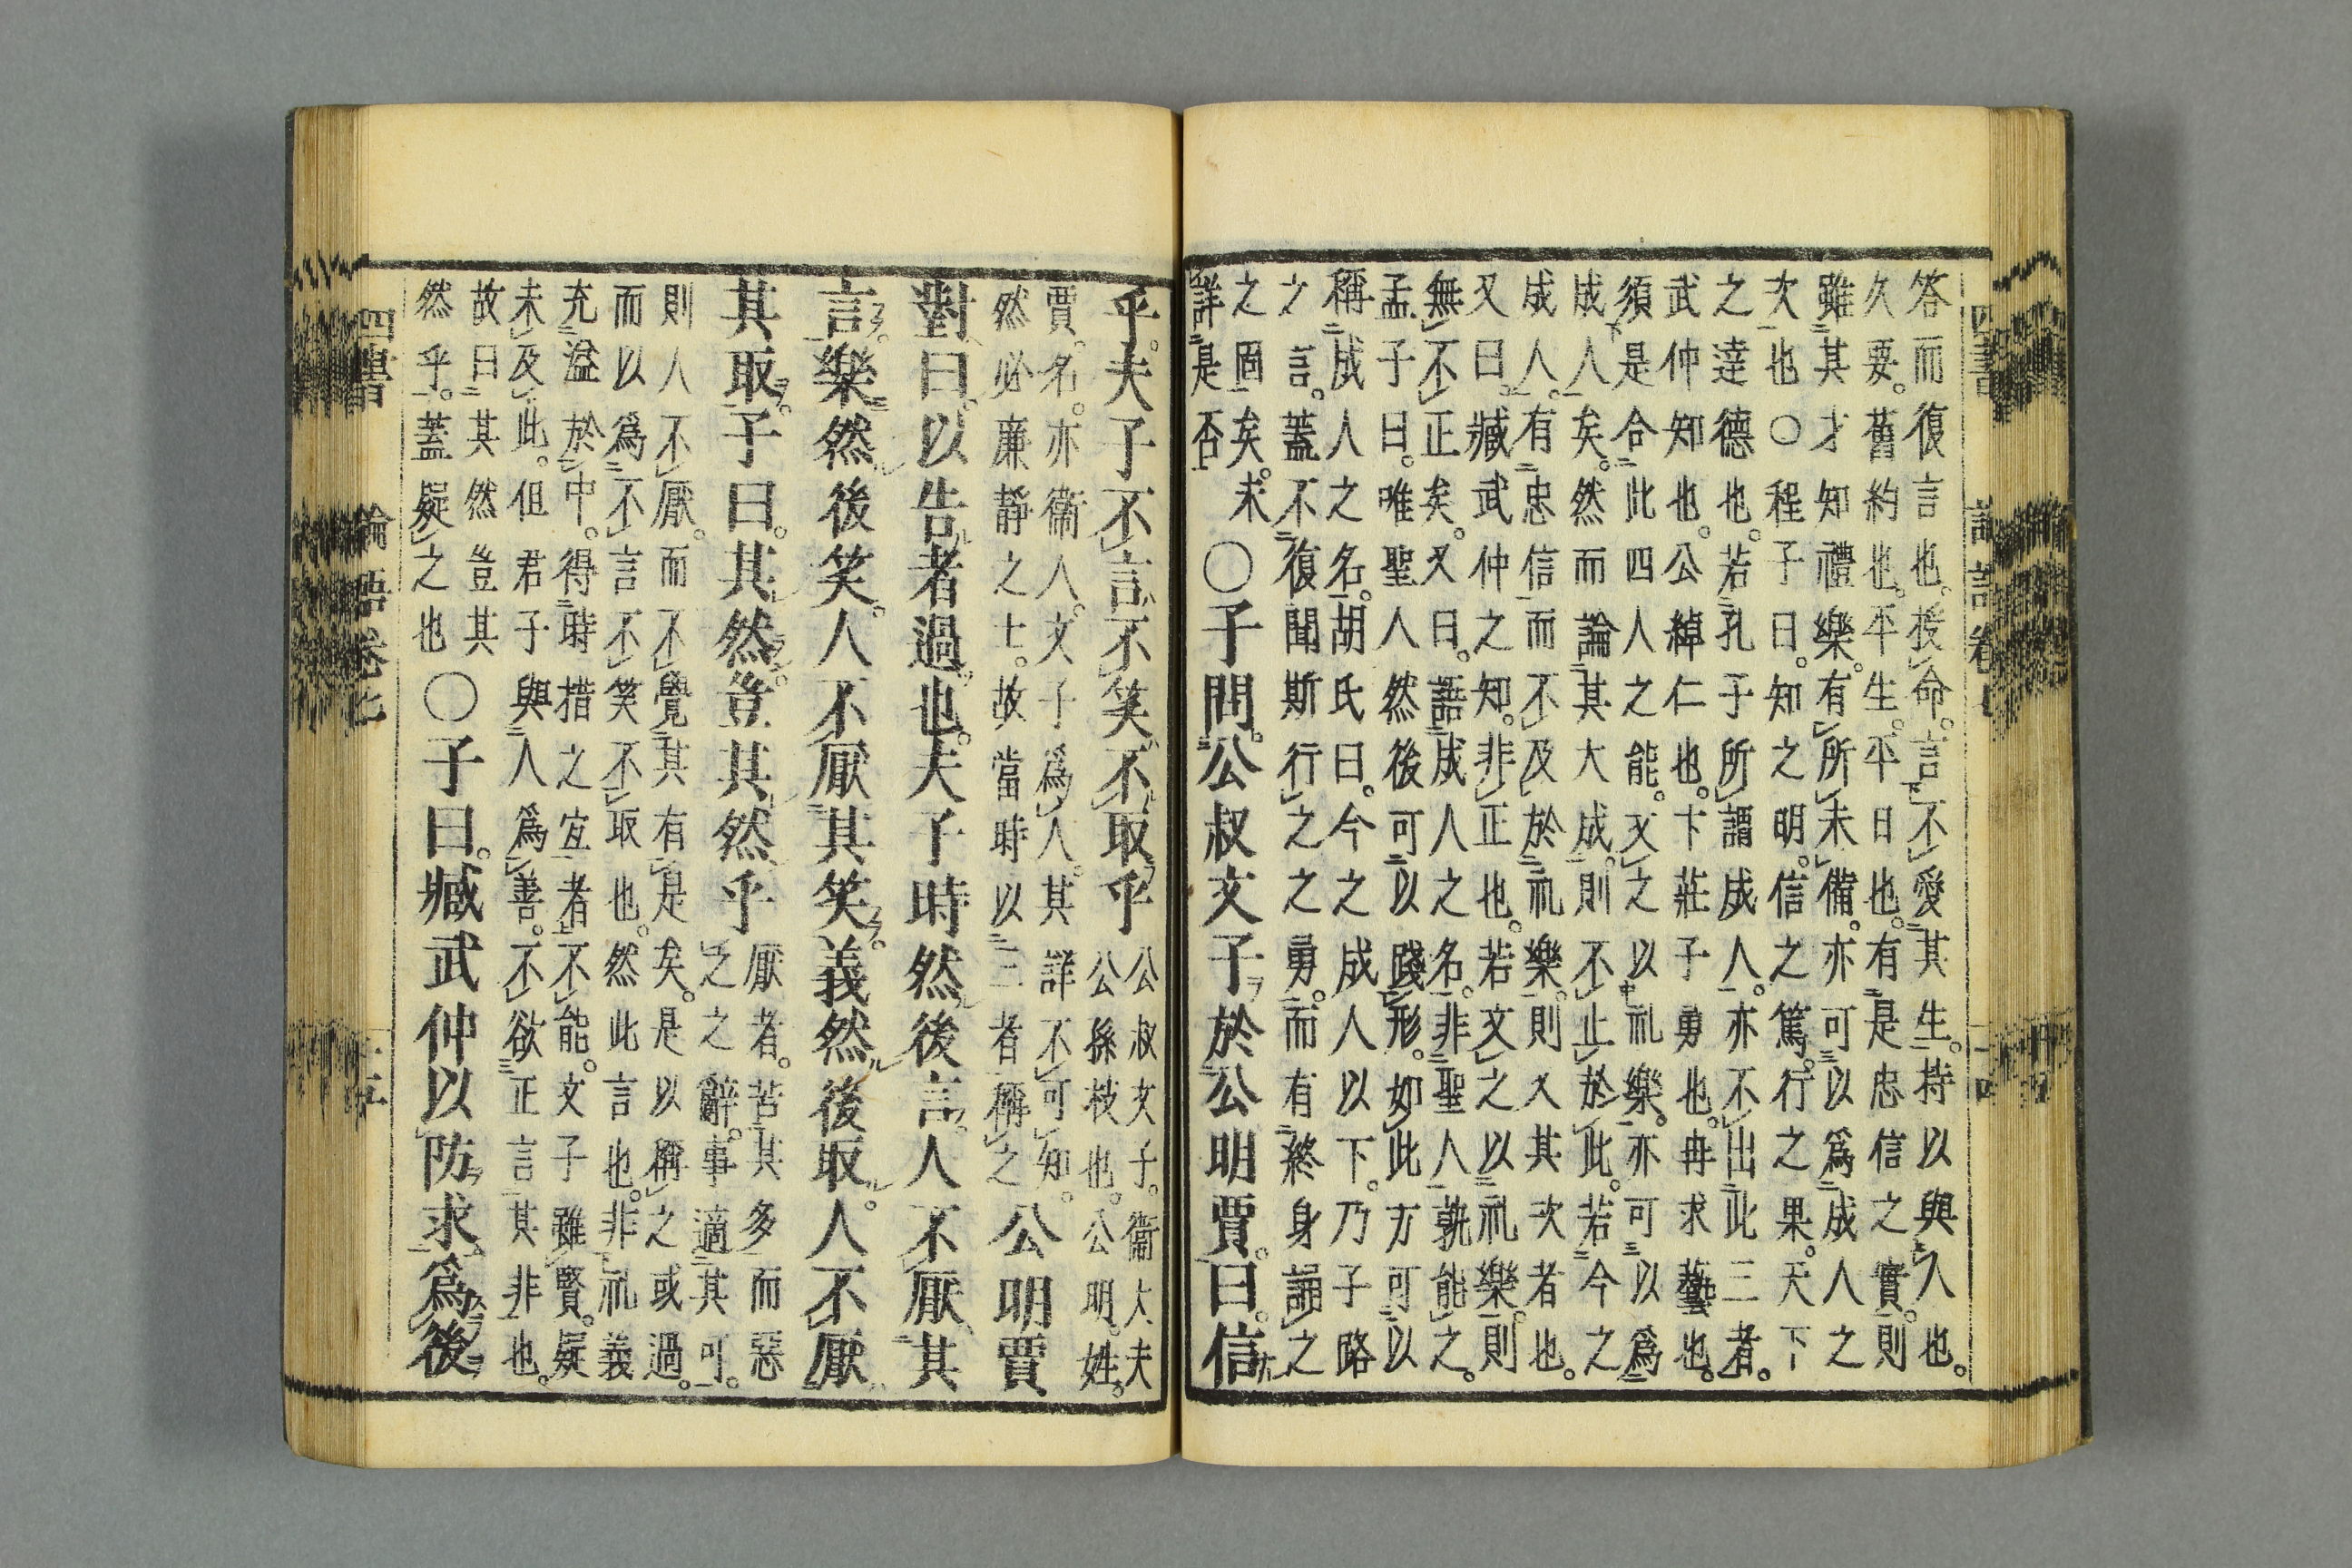 答而復言也。授命。言不愛其生。持以與人也。
久要。舊約也。平生。平日也。有是忠信之實。則
雖其才知禮樂。有所未備。亦可以爲成人之
次也○程子曰。知之明。信之篤。行之果。天下
之達德也。若孔子所謂成人。亦不出此三者。
武仲知也。公綽仁也。卞莊子勇也。冉求藝也。
須是合此四人之能。文之以礼樂。亦可以爲
成人矣。然而論其大成。則不止於此。若今之
成人。有忠信而不及於礼樂。則又其次者也。
又曰。臧武仲之知。非正也。若文之以礼樂。則
無不正矣。又曰。語成人之名。非聖人孰能之。
孟子曰。唯聖人然後可以踐形。如此方可以
稱成人之名。胡氏曰。今之成人以下。乃子路
之言。蓋不復聞斯行之之勇。而有終身誦之
之固矣。未
詳是否
○子問公叔文子於公明賈。曰。信
乎。夫子不言不笑。不取乎
公叔文子。衞大夫
公孫枝也。公明。姓。
賈。名。亦衞人。文子爲人。其詳不可知。
然必廉靜之士。故當時以三者稱之
公明賈
對曰。以告者過也。夫子時然後言。人不厭其
言。樂然後笑。人不厭其笑。義然後取。人不厭
其取。子曰。其然。豈其然乎
厭者。苦其多而惡
之之辭。事適其可。
則人不厭。而不覺其有是矣。是以稱之或過。
而以爲不言不笑不取也。然此言也。非礼義
充溢於中。得時措之宜者不能。文子雖賢。疑
未及此。但君子與人爲善。不欲正言其非也。
故曰其然豈其
然乎。蓋疑之也
○子曰。臧武仲以防求爲後
四書
論語卷七